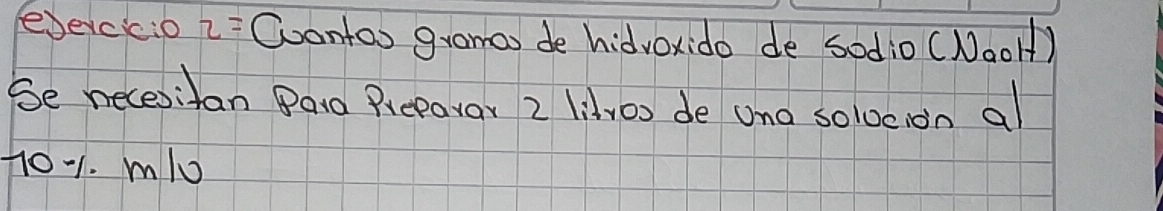 ejercicio 2 = Cuantos gramos de hidroxido de sodio (NaoH)
Se necesitan Para Preparar 2 litros de una solucion al
10 %. m/v